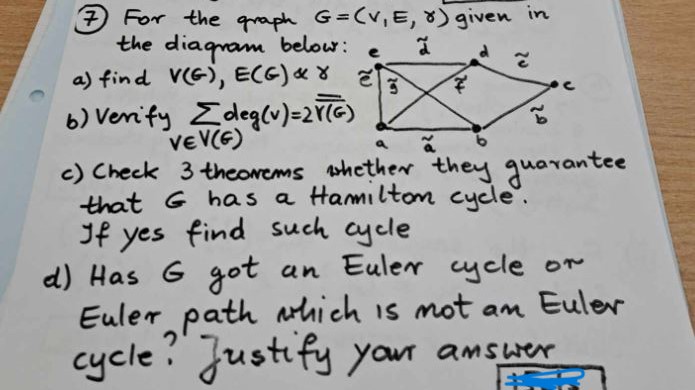 ⑦ For the graph G=(V,E,γ) given in
the diagram below:
a) find V(G), E(G) & γ
b) Verify ∑deg(v)=2γ̿(G)
v∈V(G)
e d̃ d c̃ c b̃ b ã a ẽ g̃ f̃
c) Check 3 theorems whether they guarantee
that G has a Hamilton cycle.
If yes find such cycle
d) Has G got an Euler cycle or
Euler path which is not an Euler
cycle? Justify your answer